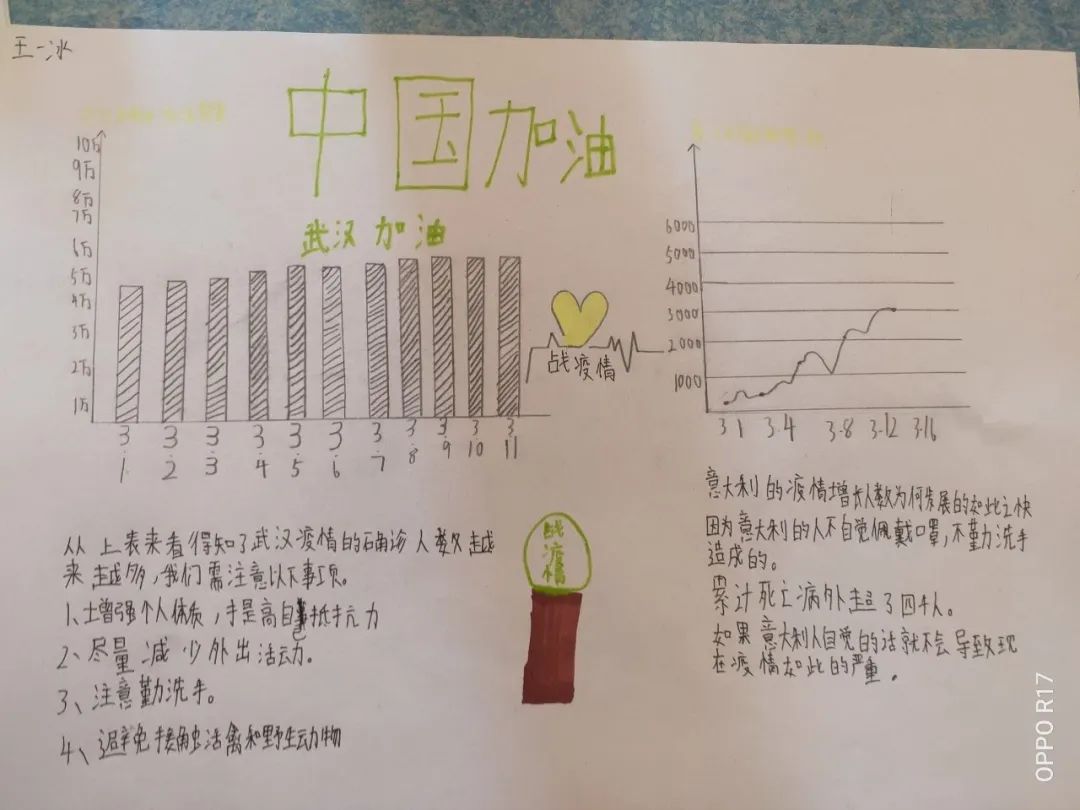 王一冰
中国加油
武汉加油
10万
9万
8万
7万
6万
5万
4万
3万
2万
1万
3.1
3.2
3.3
3.4
3.5
3.6
3.7
3.8
3.9
3.10
3.11
战疫情
6000
5000
4000
3000
2000
1000
3.1 3.4 3.8 3.12 3.16
从上表来看得知了武汉疫情的确诊人数越
来越多,我们需注意以下事项。
1、增强个人体质,提高自身抵抗力
2、尽量减少外出活动。
3、注意勤洗手。
4、避免接触活禽和野生动物
战疫情
意大利的疫情增长人数为何发展的如此之快
因为意大利的人不自觉佩戴口罩,不勤洗手
造成的。
累计死亡病例超了四千人。
如果意大利人自觉的话就不会导致现
在疫情如此的严重。
OPPO R17